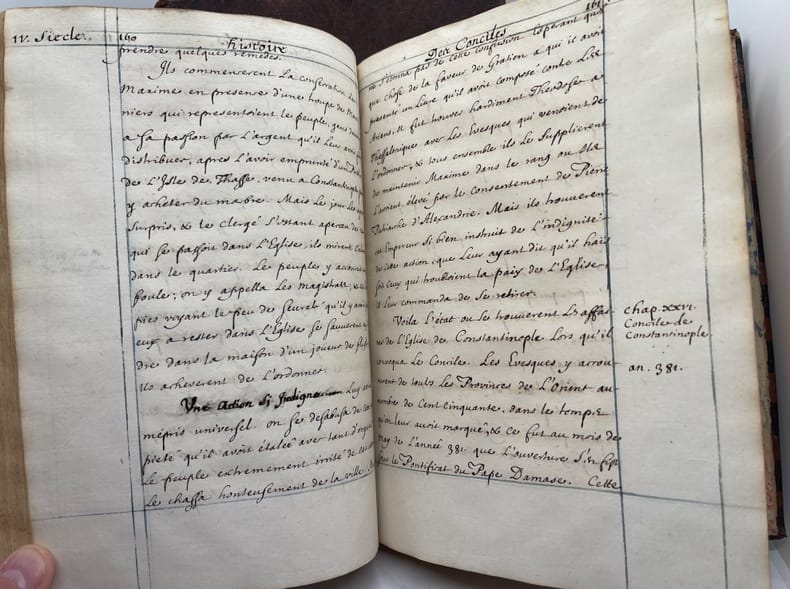 IV. Siecle. 160 histoire
prendre quelques remedes.
Ils commencerent la consecration de
Maxime en presence d'une troupe de
niers qui representoient le peuple, gens
a sa passion par l'argent qu'il leur
distribuer, apres l'avoir emprunté d'un
de L'Isle de Thasse, venu a Constantinople
y acheter du marbre. Mais le jour les
surprit, & le clergé s'estant aperceu de
qui se passoit dans L'Eglise, ils mirent
dans le quartier. Les peuples y
foule; on y appella les magistrats, &
piés voyant le peu de seureté qu'il y
eux a rester dans L'Eglise se sauverent
dre dans la maison d'un joueur de
ils acheverent de L'ordonner.
Une Action si Indigne luy
mépris universel. on se desabusa de
pieté qu'il avoit étalée avec tant d'
Le peuple extremement irrité de
Le chassa honteusement de la ville.
Des Conciles 161
ne s'étonna pas de cette confusion. Esperant
que chose de la faveur de Gratien a qui il avoit
presenté un Livre qu'il avoit composé contre Les
Ariens. Il fut trouver hardiment Theodose a
Thessalonique avec les Evesques qui venoient de
L'ordonner, & tous ensemble ils le supplierent
de maintenir Maxime dans le rang ou ils
L'avoient elevé par le consentement de Pierre
Patriarche d'Alexandrie. Mais ils trouverent
cet Empereur si bien instruit de L'indignité
de cette action, que leur ayant dit qu'il
ceux qui troubloient la paix de L'Eglise,
il leur commanda de se retirer.
Voila L'état ou se trouverent les affai
res de L'Eglise de Constantinople Lors qu'il
convoqua le Concile. Les Evesques y accou
rurent de toutes les Provinces de L'Orient au
nombre de cent cinquante, dans le temps
qu'on leur avoit marqué, & ce fut au mois de
may de L'année 381 que L'ouverture s'en fist
sous le Pontificat du Pape Damase. Cette
chap. XXVI.
Concile de
Constantinople.
an. 381.